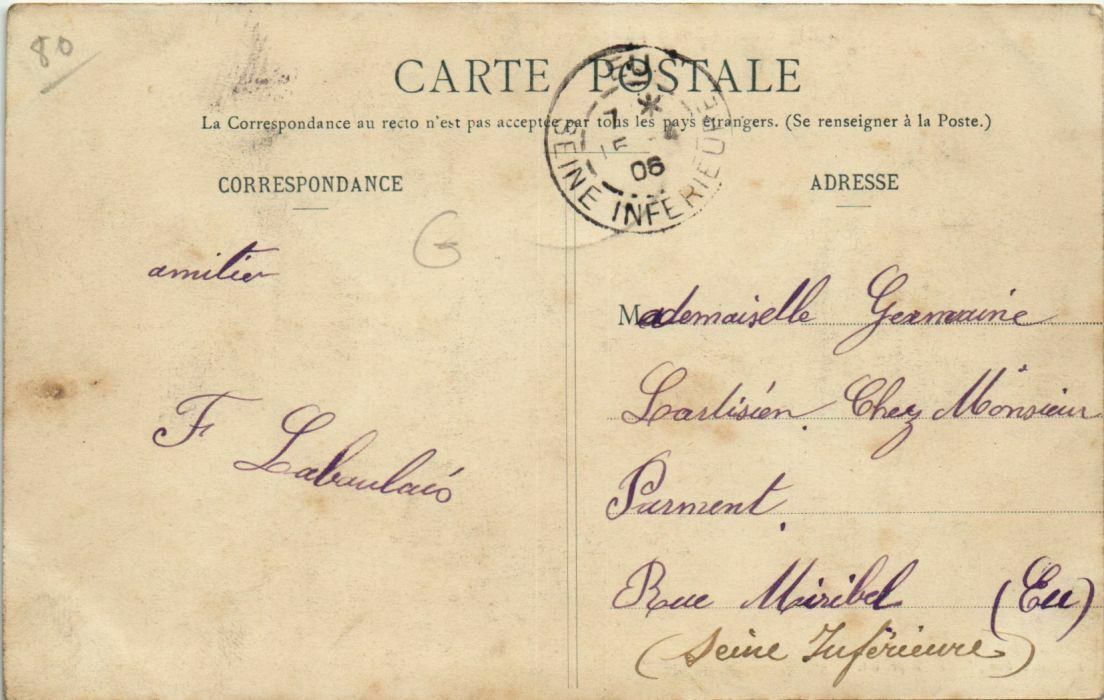 80
CARTE POSTALE
La Correspondance au recto n'est pas acceptée par tous les pays étrangers. (Se renseigner à la Poste.)
EU
7 *
15
06
SEINE INFERIEURE
CORRESPONDANCE
ADRESSE
G
amitier
F Labaulais
Mademaiselle Germaine
Lartisien Chez Monsieur
Parment
Rue Miribel (Eu)
(Seine Inférieure)